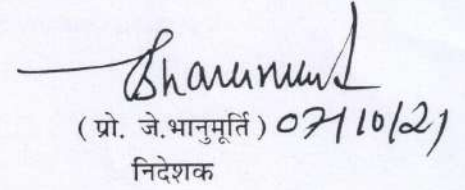 Bhanumurti
( प्रो. जे.भानुमूर्ति ) 07/10/21
निदेशक